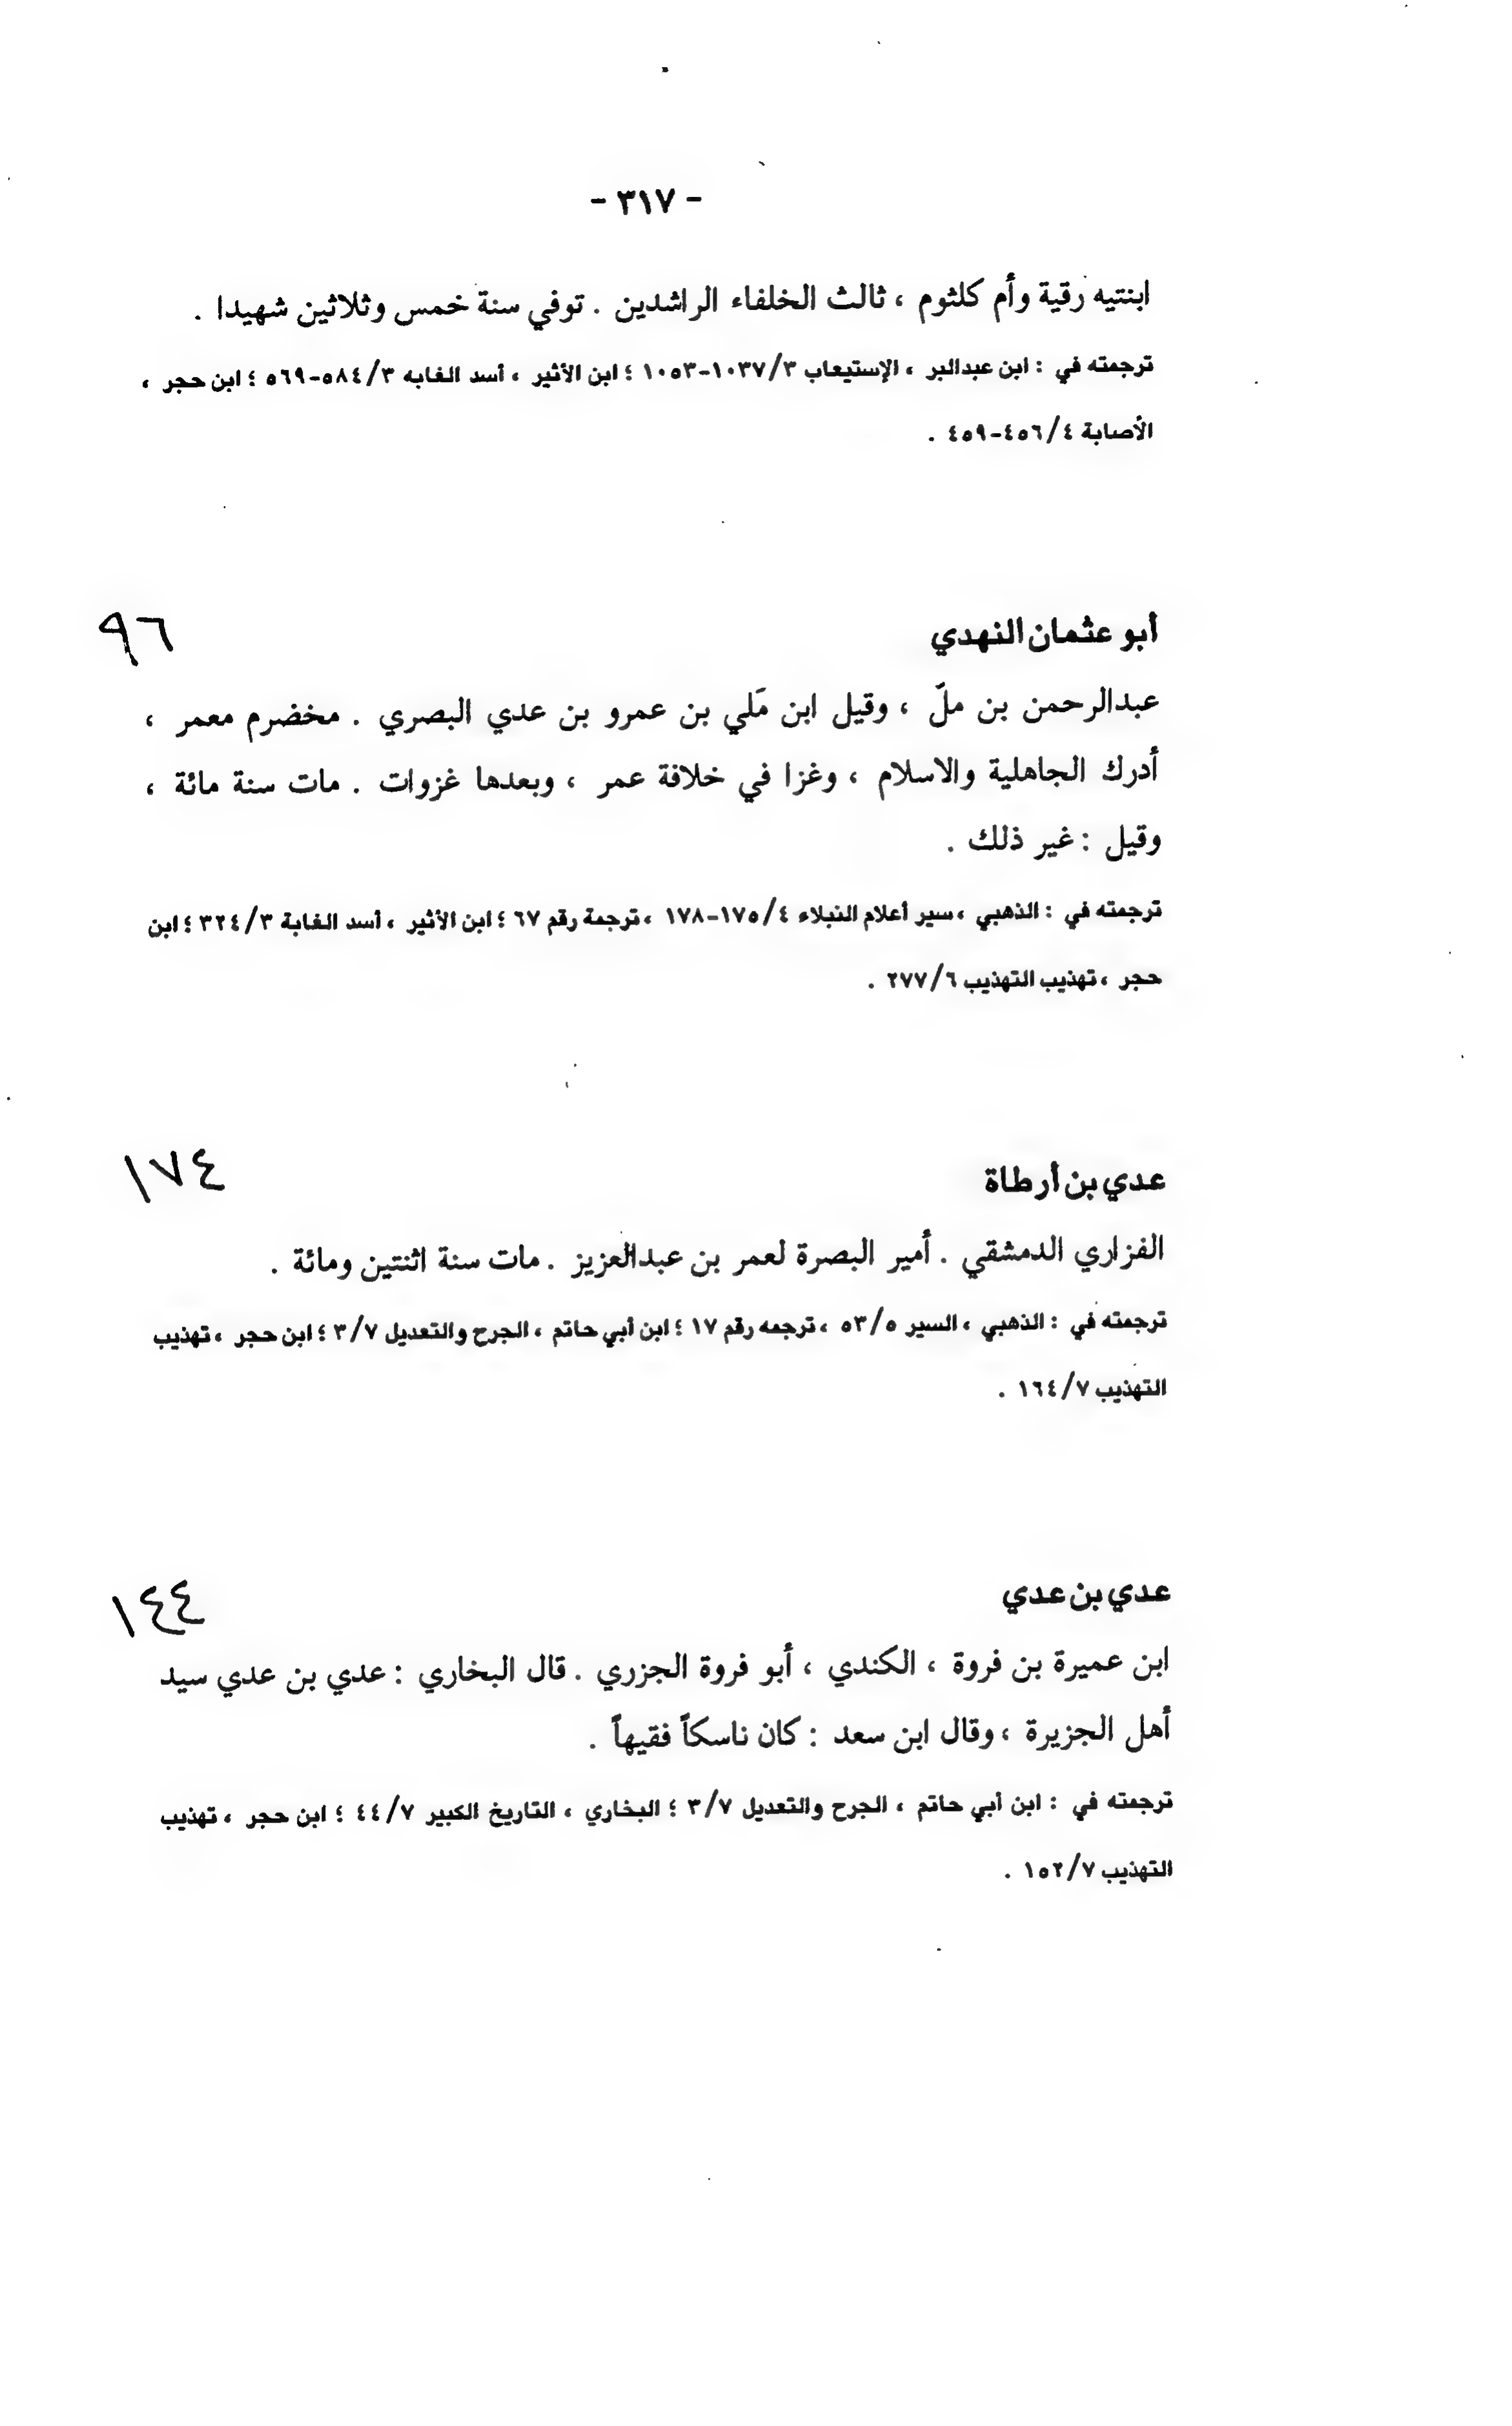 - ٣١٧ -
ابنتيه رقية وأم كلثوم ، ثالث الخلفاء الراشدين . توفي سنة خمس وثلاثين شهيدا .
ترجمته في : ابن عبدالبر ، الإستيعاب ١٠٣٧/٣-١٠٥٣ ؛ ابن الأثير ، أسد الغابه ٥٨٤/٣-٥٦٩ ؛ ابن حجر ،
الأصابة ٤٥٦/٤-٤٥٩ .
أبو عثمان النهدي ٩٦
عبدالرحمن بن ملّ ، وقيل ابن مَلي بن عمرو بن عدي البصري . مخضرم معمر ،
أدرك الجاهلية والاسلام ، وغزا في خلافة عمر ، وبعدها غزوات . مات سنة مائة ،
وقيل : غير ذلك .
ترجمته في : الذهبي ، سير أعلام النبلاء ١٧٥/٤-١٧٨ ، ترجمة رقم ٦٧ ؛ ابن الأثير ، أسد الغابة ٣٢٤/٣ ؛ ابن
حجر ، تهذيب التهذيب ٢٧٧/٦ .
عدي بن أرطاة ١٧٤
الفزاري الدمشقي . أمير البصرة لعمر بن عبدالعزيز . مات سنة اثنتين ومائة .
ترجمته في : الذهبي ، السير ٥٣/٥ ، ترجمه رقم ١٧ ؛ ابن أبي حاتم ، الجرح والتعديل ٣/٧ ؛ ابن حجر ، تهذيب
التهذيب ١٦٤/٧ .
عدي بن عدي ١٤٤
ابن عميرة بن فروة ، الكندي ، أبو فروة الجزري . قال البخاري : عدي بن عدي سيد
أهل الجزيرة ، وقال ابن سعد : كان ناسكاً فقيهاً .
ترجمته في : ابن أبي حاتم ، الجرح والتعديل ٣/٧ ؛ البخاري ، التاريخ الكبير ٤٤/٧ ؛ ابن حجر ، تهذيب
التهذيب ١٥٢/٧ .